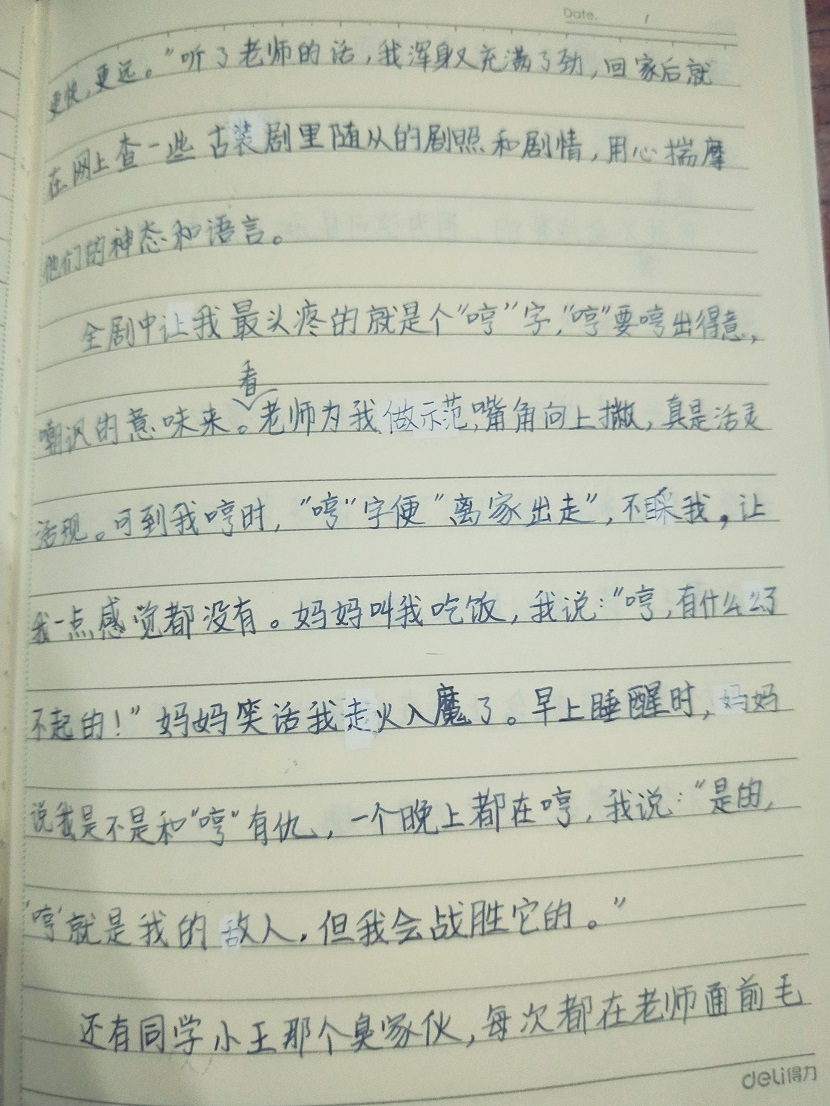 Date. /
更快，更远。"听了老师的话，我浑身又充满了劲，回家后就
在网上查一些古装剧里随从的剧照和剧情，用心揣摩
他们的神态和语言。
全剧中让我最头疼的就是个"哼"字，"哼"要哼出得意，
看
嘲讽的意味来。老师为我做示范，嘴角向上撇，真是活灵
活现。可到我哼时，"哼"字便"离家出走"，不睬我，让
我一点感觉都没有。妈妈叫我吃饭，我说："哼，有什么了
不起的！"妈妈笑话我走火入魔了。早上睡醒时，妈妈
说我是不是和"哼"有仇，一个晚上都在哼，我说："是的，
'哼'就是我的敌人，但我会战胜它的。"
还有同学小王那个臭家伙，每次都在老师面前毛
deli得力